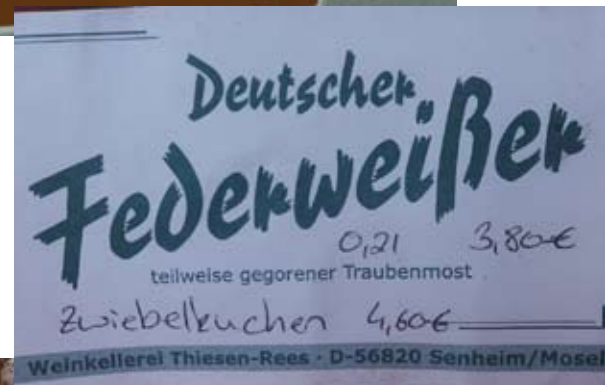 Deutscher
Federweißer
0,2l 3,80€
teilweise gegorener Traubenmost
Zwiebelkuchen 4,60€
Weinkellerei Thiesen-Rees · D-56820 Senheim/Mosel